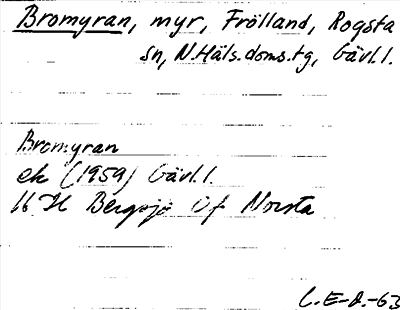 Bromyran, myr, Frölland, Rogsta
sn, N.Häls.doms.tg, Gävl.l.
Bromyran
ek (1959) Gävl.l.
16 H Bergsjö Of Norsta
C.E-d.-63